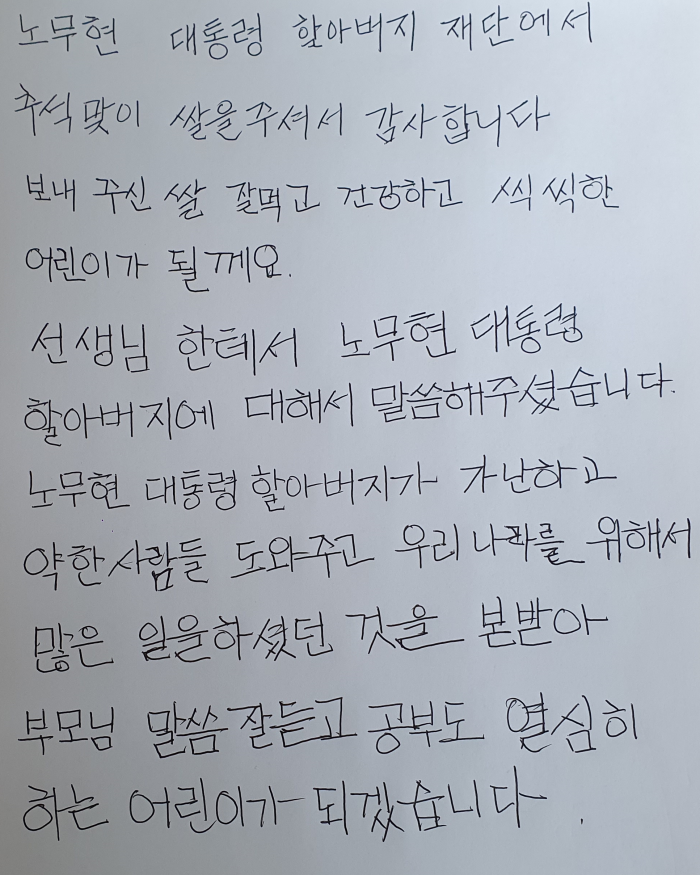 노무현 대통령 할아버지 재단에서
추석맞이 쌀을주셔서 감사합니다
보내 주신 쌀 잘먹고 건강하고 씩씩한
어린이가 될께요.
선생님 한테서 노무현 대통령
할아버지에 대해서 말씀해주셨습니다.
노무현 대통령 할아버지가 가난하고
약한사람들 도와주고 우리 나라를 위해서
많은 일을하셨던 것을 본받아
부모님 말씀잘듣고 공부도 열심히
하는 어린이가 되겠습니다.